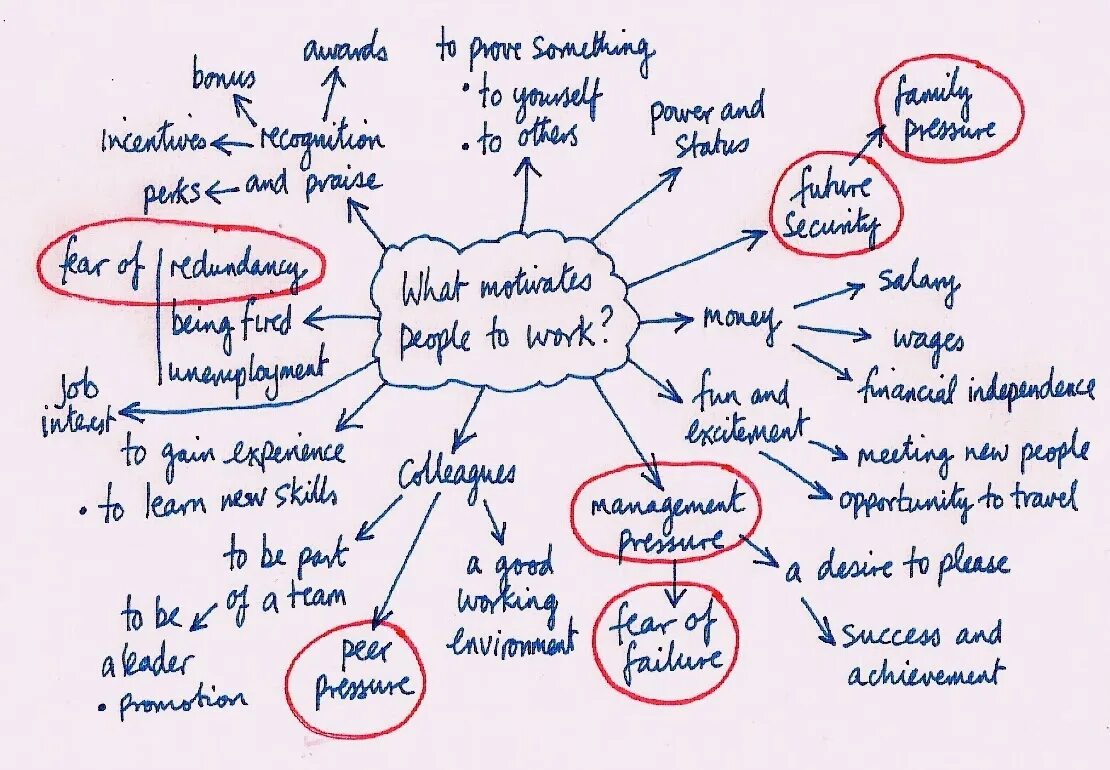 What motivates
people to work?
awards
bonus
incentives
recognition
perks
and praise
to prove something
• to yourself
• to others
power and
status
family
pressure
future
security
money
salary
wages
financial independence
fun and
excitement
meeting new people
opportunity to travel
management
pressure
a desire to please
success and
achievement
fear of
failure
Colleagues
a good
working
environment
peer
pressure
to be part
of a team
to be
a leader
• promotion
to gain experience
• to learn new skills
Job
interest
fear of
redundancy
being fired
unemployment